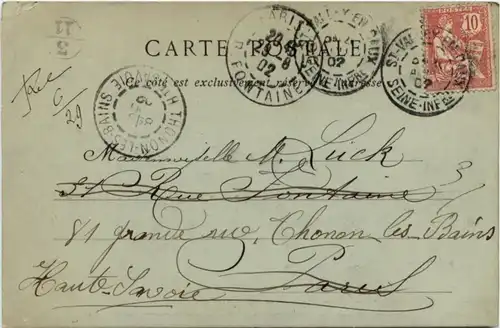 CARTE POSTALE
Ce côté est exclusivement réservé à l'adresse
PARIS
R. FONTAINE
02
ST VALERY-EN-CAUX
SEINE-INFRE
02
10
THONON-LES-BAINS
HTE SAVOIE
Mademoiselle M. Luck
31 Rue Fontaine
81 grande rue, Thonon les Bains
Haute-Savoie Paris